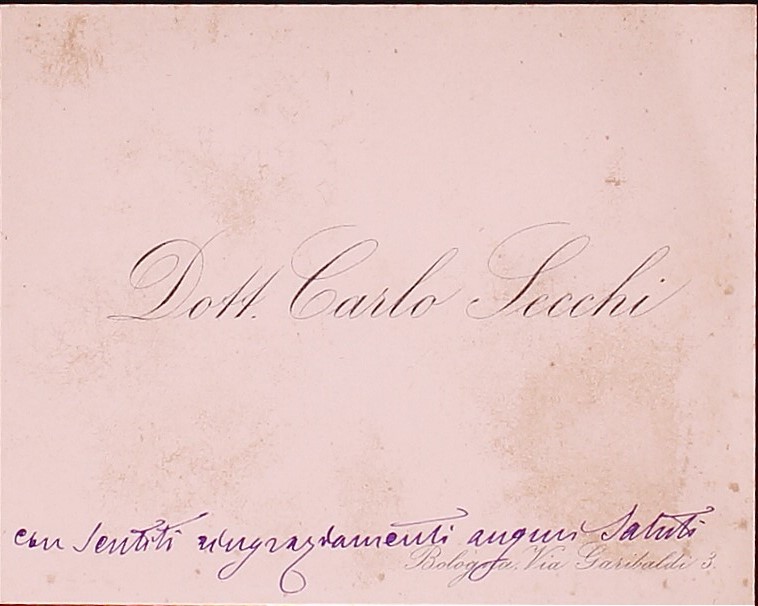 Dott. Carlo Secchi
con sentiti ringraziamenti auguri saluti
Bologna, Via Garibaldi 3.